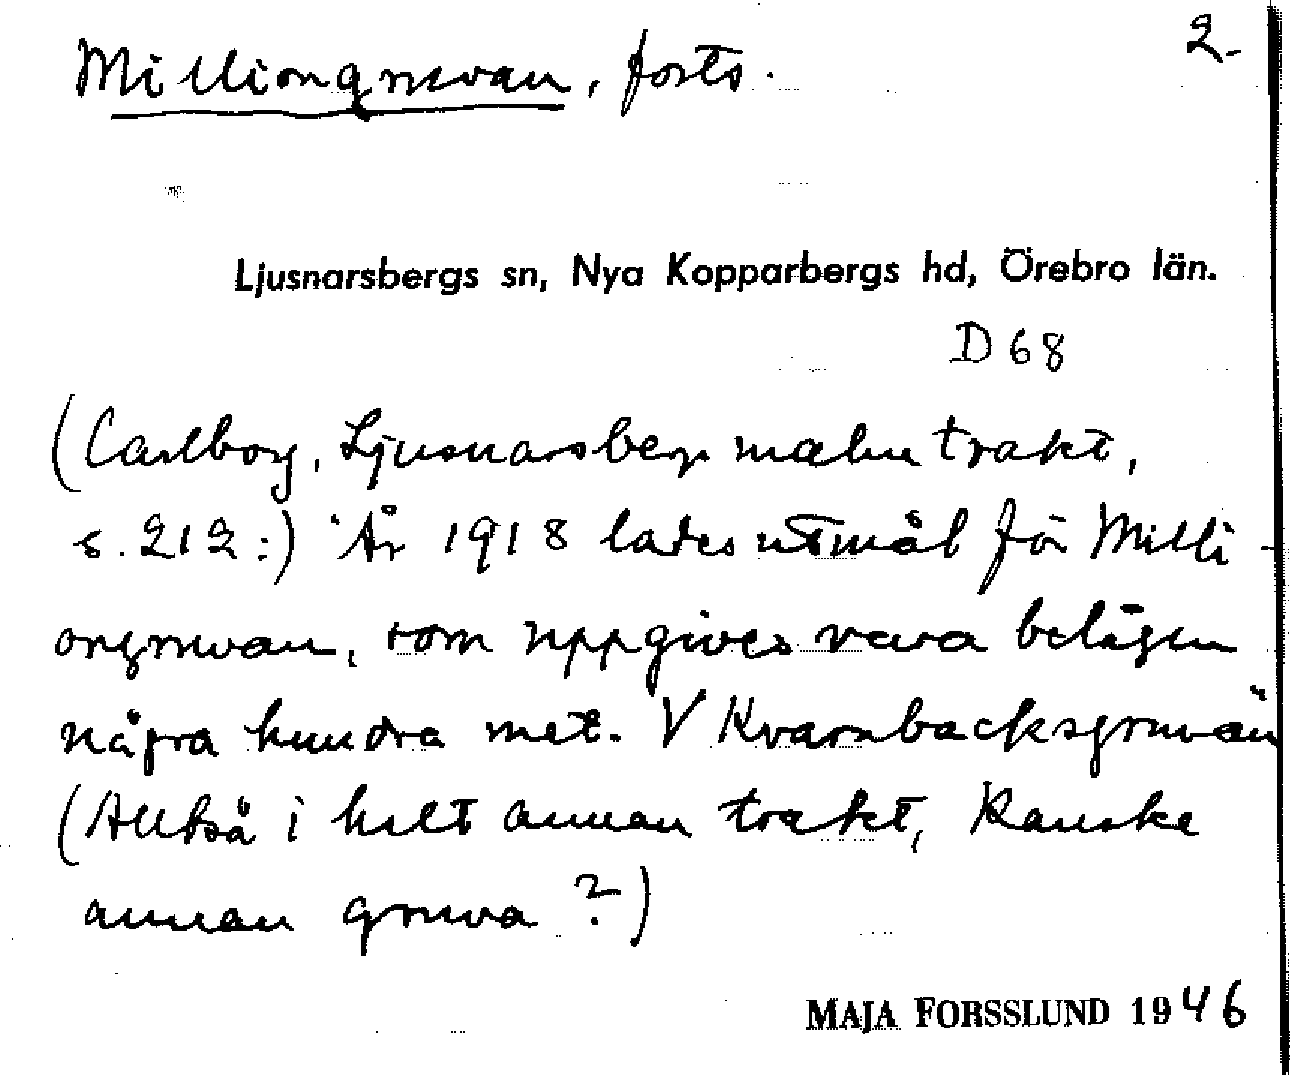 Milliongruvan, forts. 2.
Ljusnarsbergs sn, Nya Kopparbergs hd, Örebro län.
D 68
(Carlborg, Ljusnarsbergs malmtrakt,
s. 212:) År 1918 lades utmål för Milli-
ongruvan, som uppgives vara belägen
några hundra met. V Kvarnbacksgruvan
(Alltså i helt annan trakt, Kanske
annan gruva ?)
MAJA FORSSLUND 1946